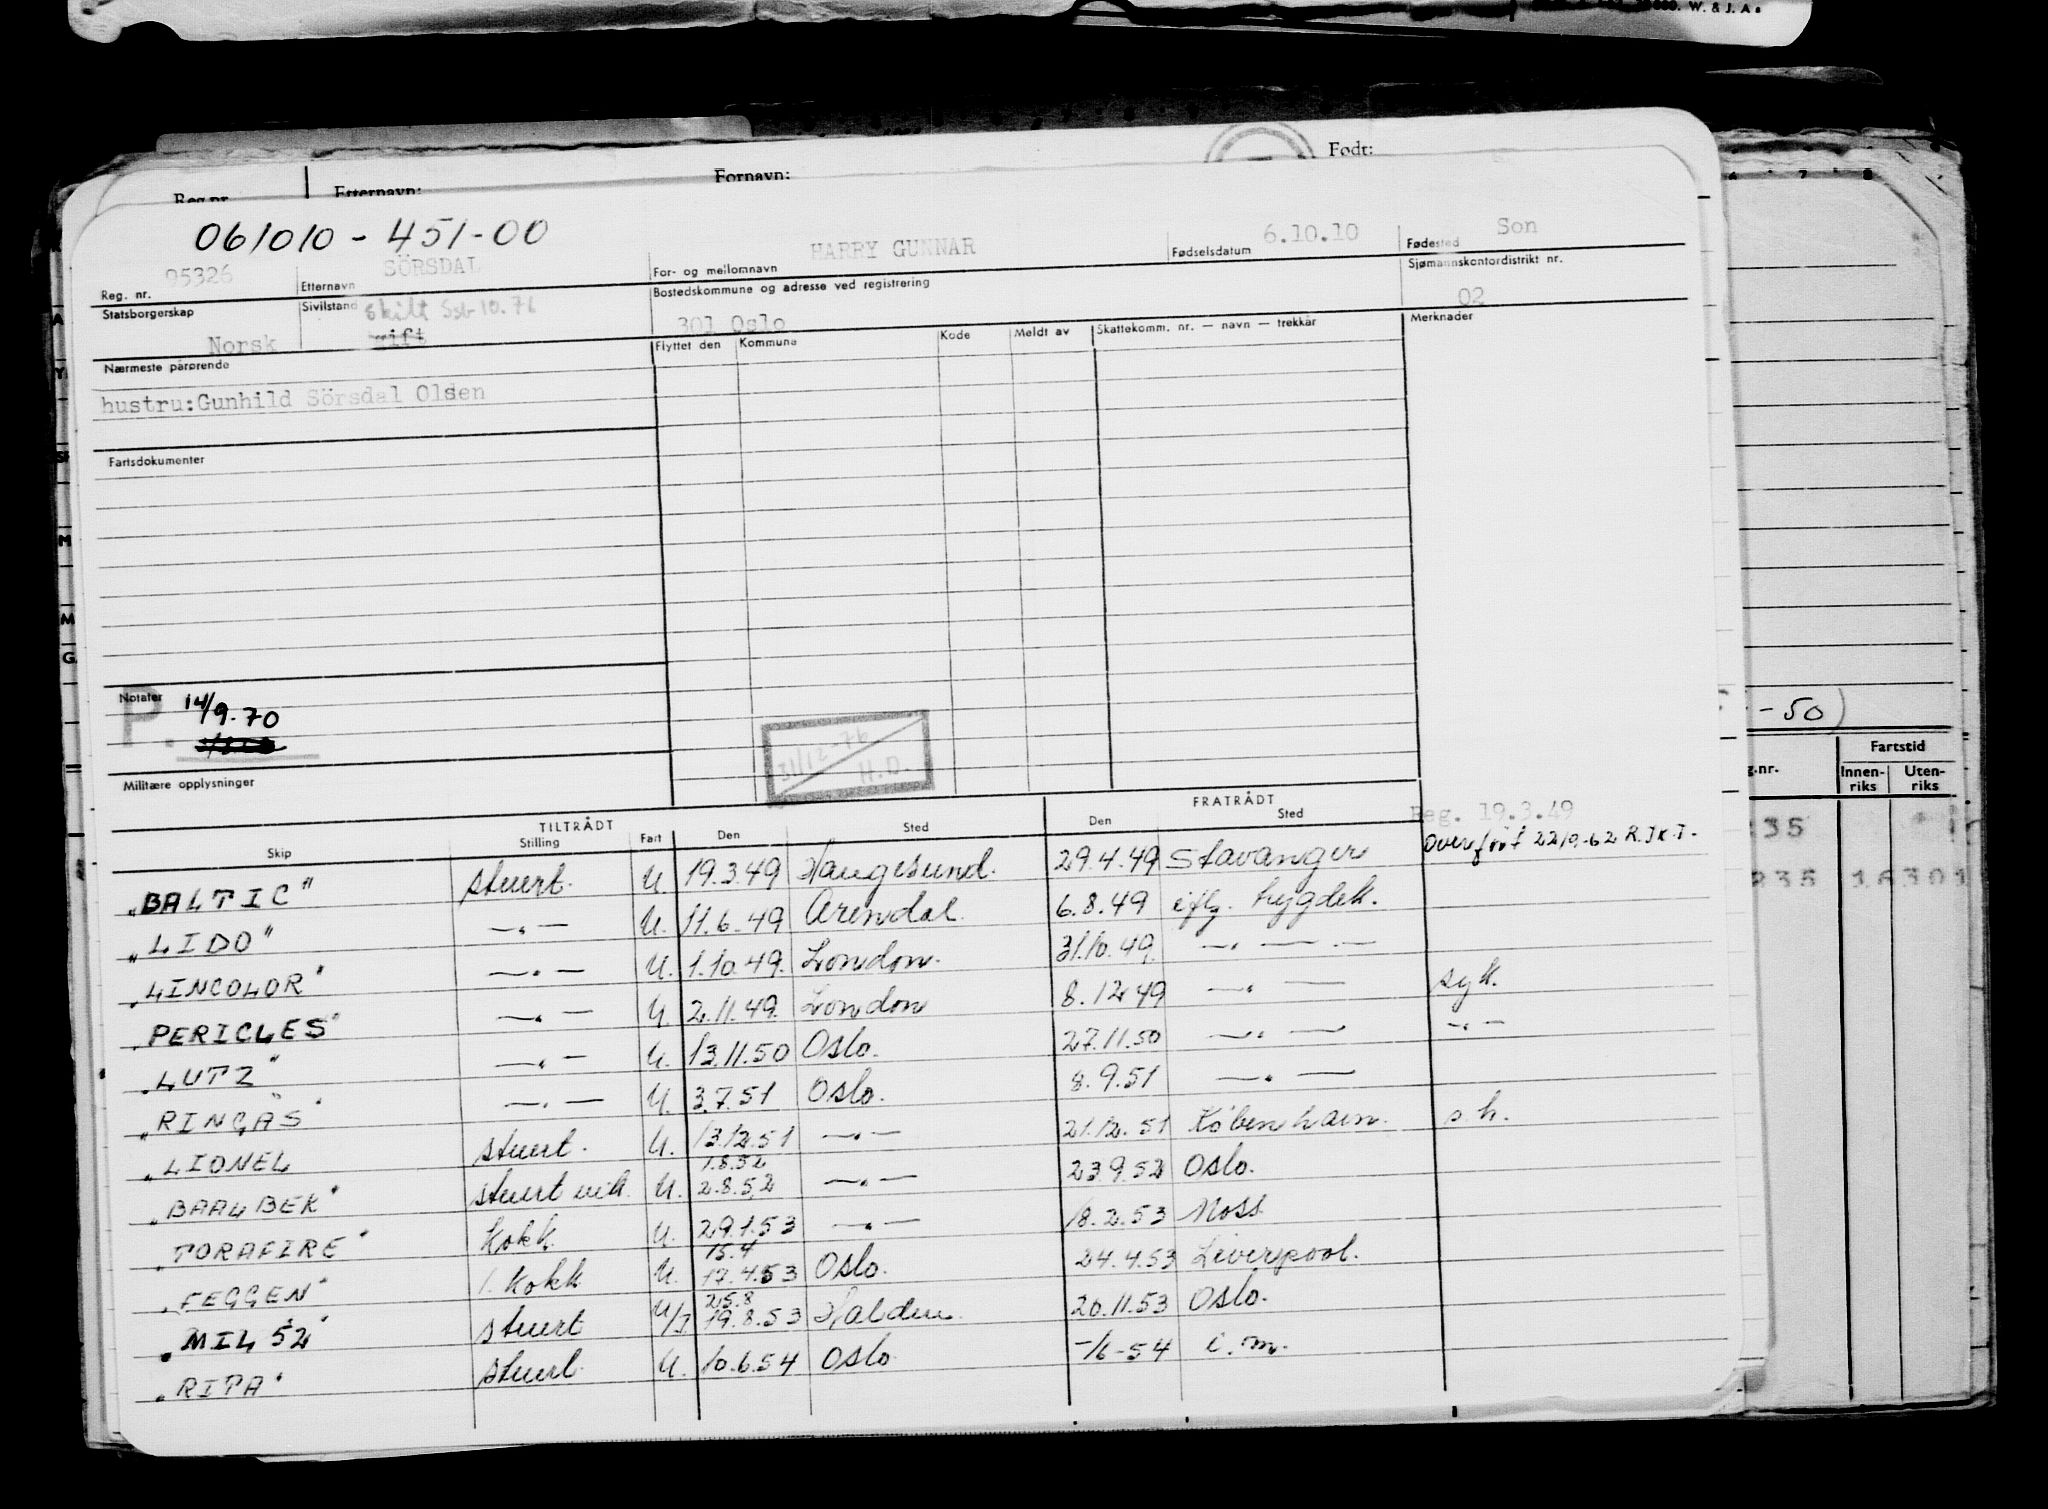 W. & J. A.
Reg.nr. Etternavn: Fornavn: Født:
061010 - 451-00
95326 SÖRSDAL HARRY GUNNAR 6.10.10 Son
Reg. nr. Etternavn For- og mellomnavn Fødselsdatum Fødested
Statsborgerskap Sivilstand Bostedskommune og adresse ved registrering Sjømannskontordistrikt nr.
skilt Ssb 10.76
Norsk gift 301 Oslo 02
Nærmeste pårørende Flyttet den Kommune Kode Meldt av Skattekomm. nr. — navn — trekkår Merknader
hustru:Gunhild Sörsdal Olsen
Fartsdokumenter
Notater
P. 14/9.70
31/12-76
H.O.
Militære opplysninger
- 50)
g.nr. Fartstid
Innen-riks Uten-riks
235
235 16301
TILTRÅDT FRATRÅDT
Skip Stilling Fart Den Sted Den Sted
Reg. 19.3.49
Overført 22/9-62 R.Tk.T.
"BALTIC" stuert. U. 19.3.49 Haugesund. 29.4.49 Stavanger
"LIDO" —"— U. 11.6.49 Arendal 6.8.49 iflg. trygdek.
"LINCOLOR" —"— U. 1.10.49. London. 31.10.49. —"— —"—
"PERICLES" —"— U. 2.11.49. London 8.12.49 —"— syk.
"LUTZ" —"— U. 13.11.50 Oslo. 27.11.50 —"— —"—
"RINGÅS" —"— U. 3.7.51 Oslo. 8.9.51 —"—
"LIONEL stuert. U. 13.12.51 —"— 21.12.51 København. s.h.
"BAALBEK" stuert vik. U. 1.8.52 2.8.52 —"— 23.9.52 Oslo.
"TORAFIRE" Kokk U. 29.1.53 —"— 18.2.53 Moss
"FEGGEN" 1. Kokk U. 15.4 17.4.53 Oslo. 24.4.53 Liverpool.
"MIL 52" stuert U/I 25.8 19.8.53 Halden. 20.11.53 Oslo.
"RITA" stuert U. 10.6.54 Oslo -/6-54 e.m.